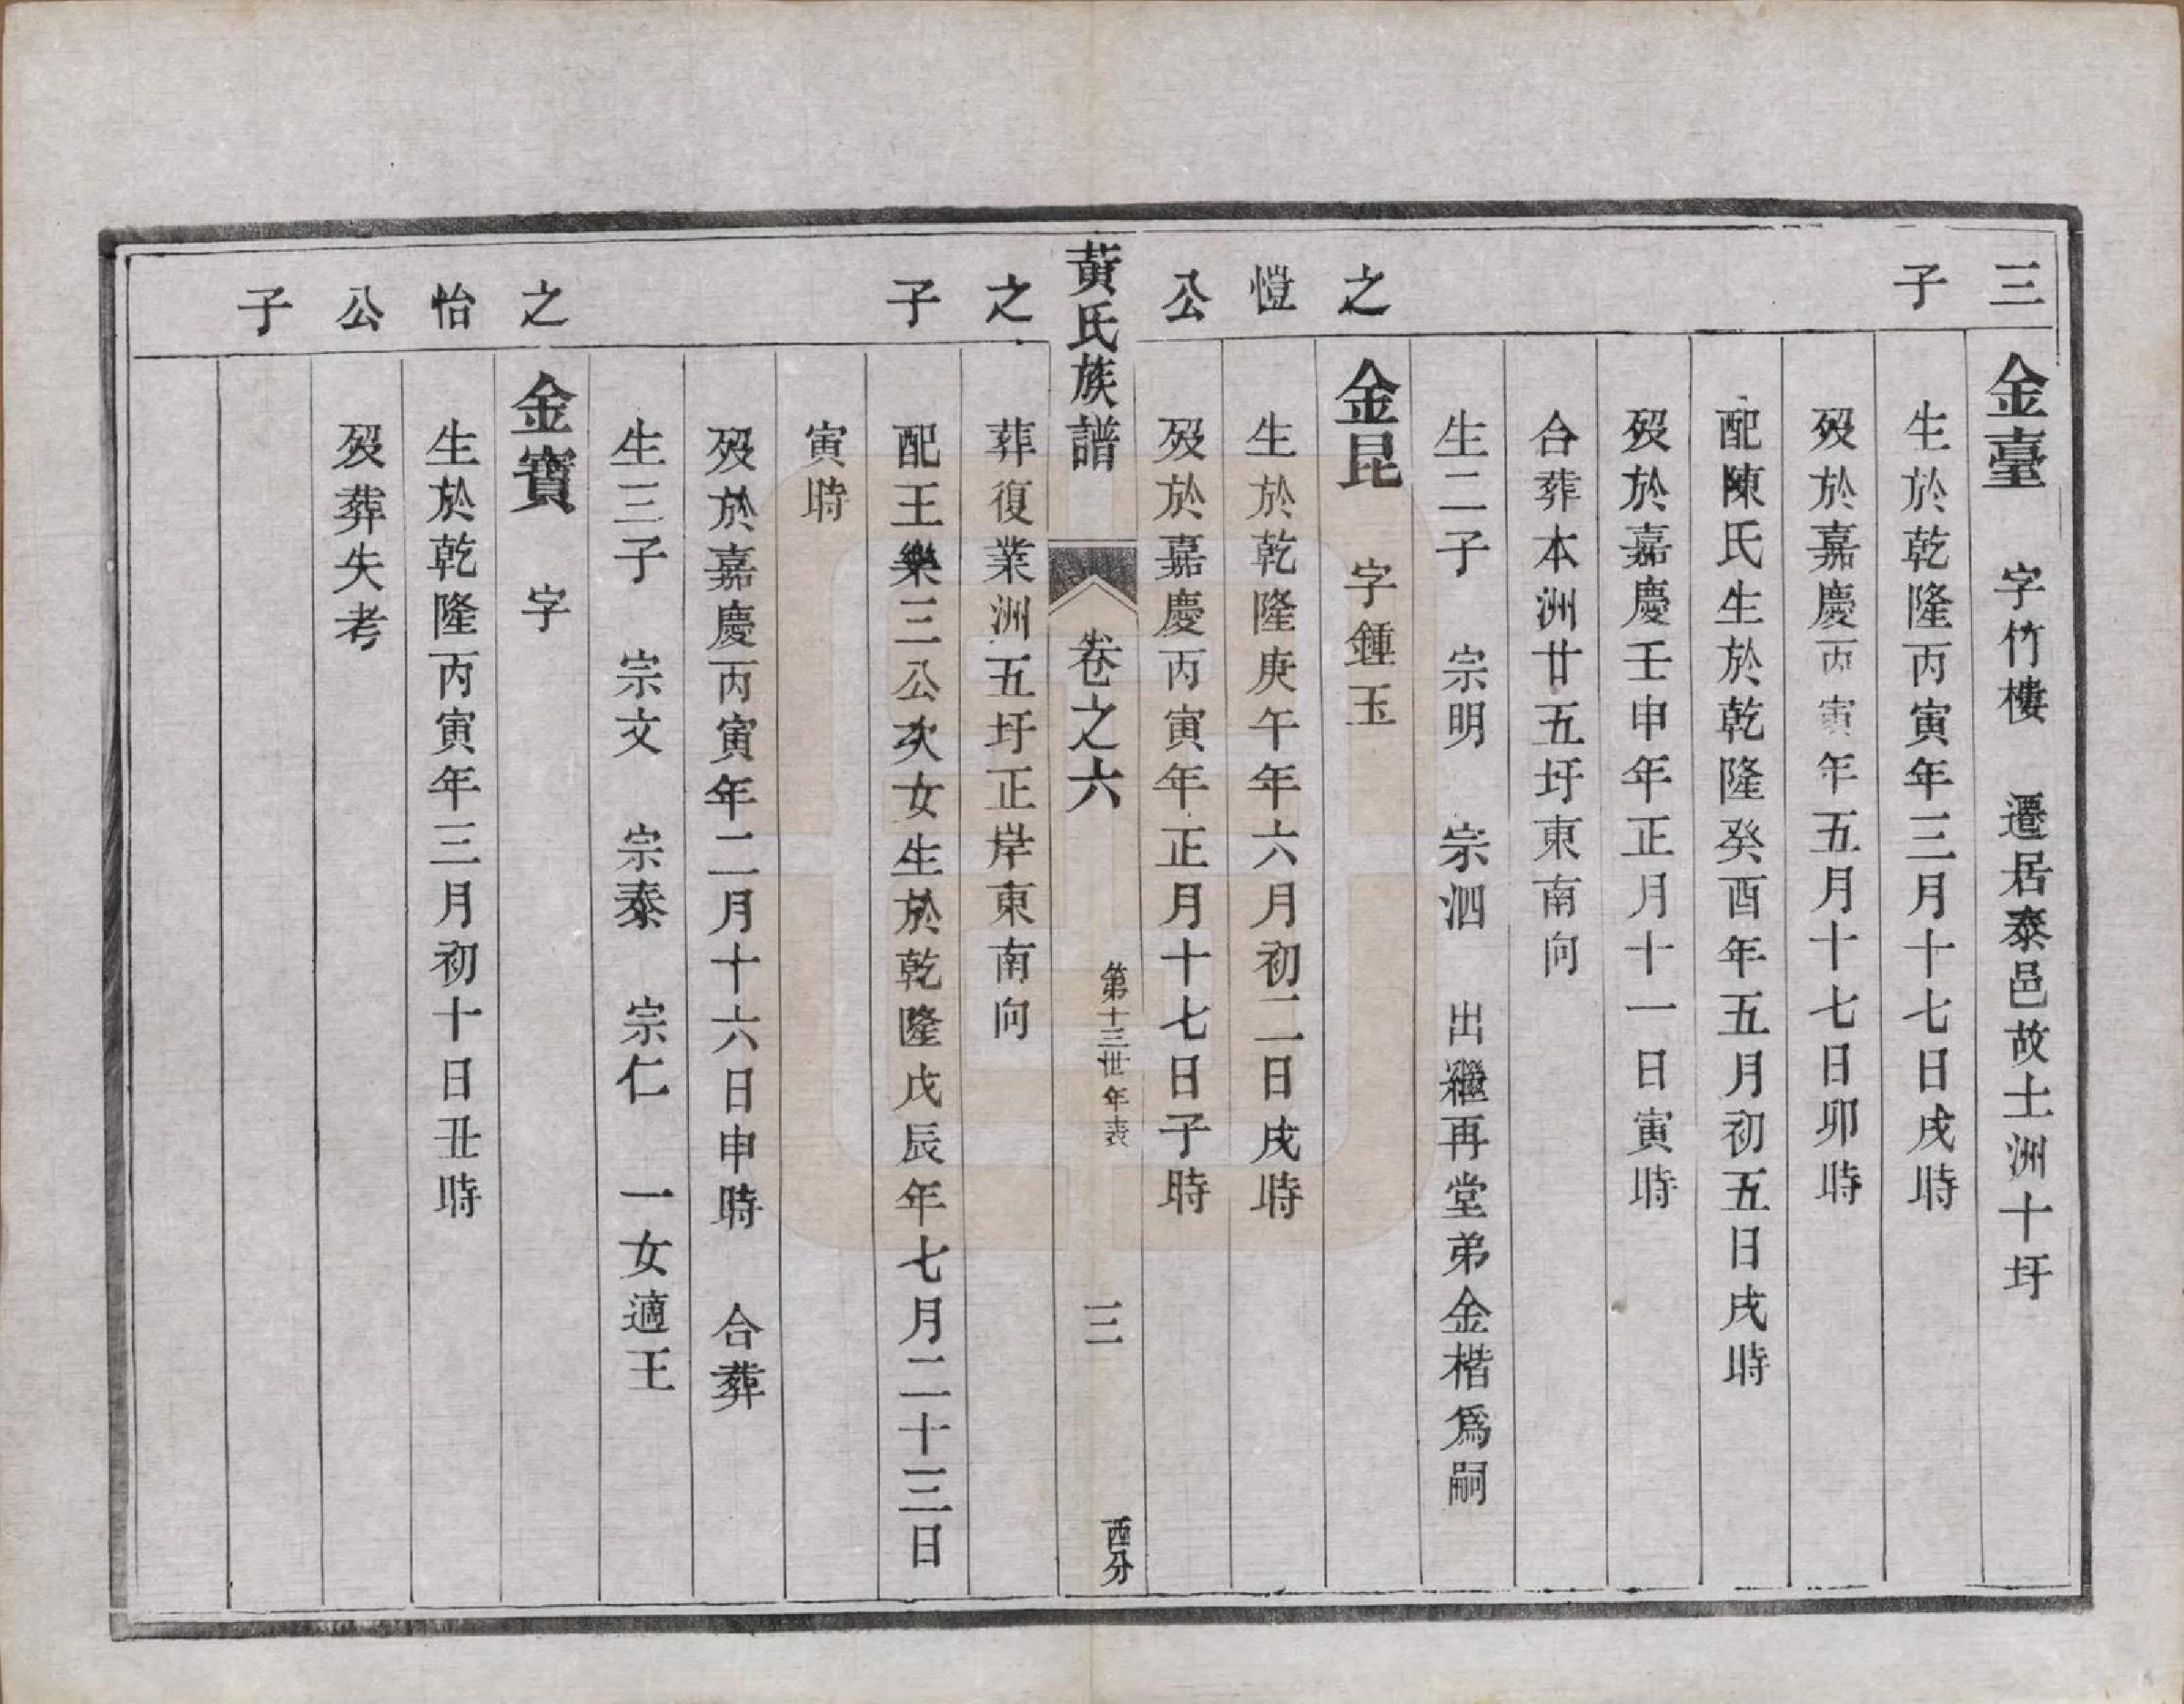 三子
金臺 字竹樓 遷居泰邑故土洲十圩
生於乾隆丙寅年三月十七日戌時
歿於嘉慶丙寅年五月十七日卯時
配陳氏生於乾隆癸酉年五月初五日戌時
歿於嘉慶壬申年正月十一日寅時
合葬本洲廿五圩東南向
生二子 宗明 宗泗 出繼再堂弟金楷爲嗣
之愷公
金昆 字鍾玉
生於乾隆庚午年六月初二日戌時
歿於嘉慶丙寅年正月十七日子時
黃氏族譜 卷之六 第十三世年表 三 酉分
之子
葬復業洲五圩正岸東南向
配王樂三公次女生於乾隆戊辰年七月二十三日
寅時
歿於嘉慶丙寅年二月十六日申時 合葬
生三子 宗文 宗泰 宗仁 一女適王
之怡公子
金寶 字
生於乾隆丙寅年三月初十日丑時
歿葬失考